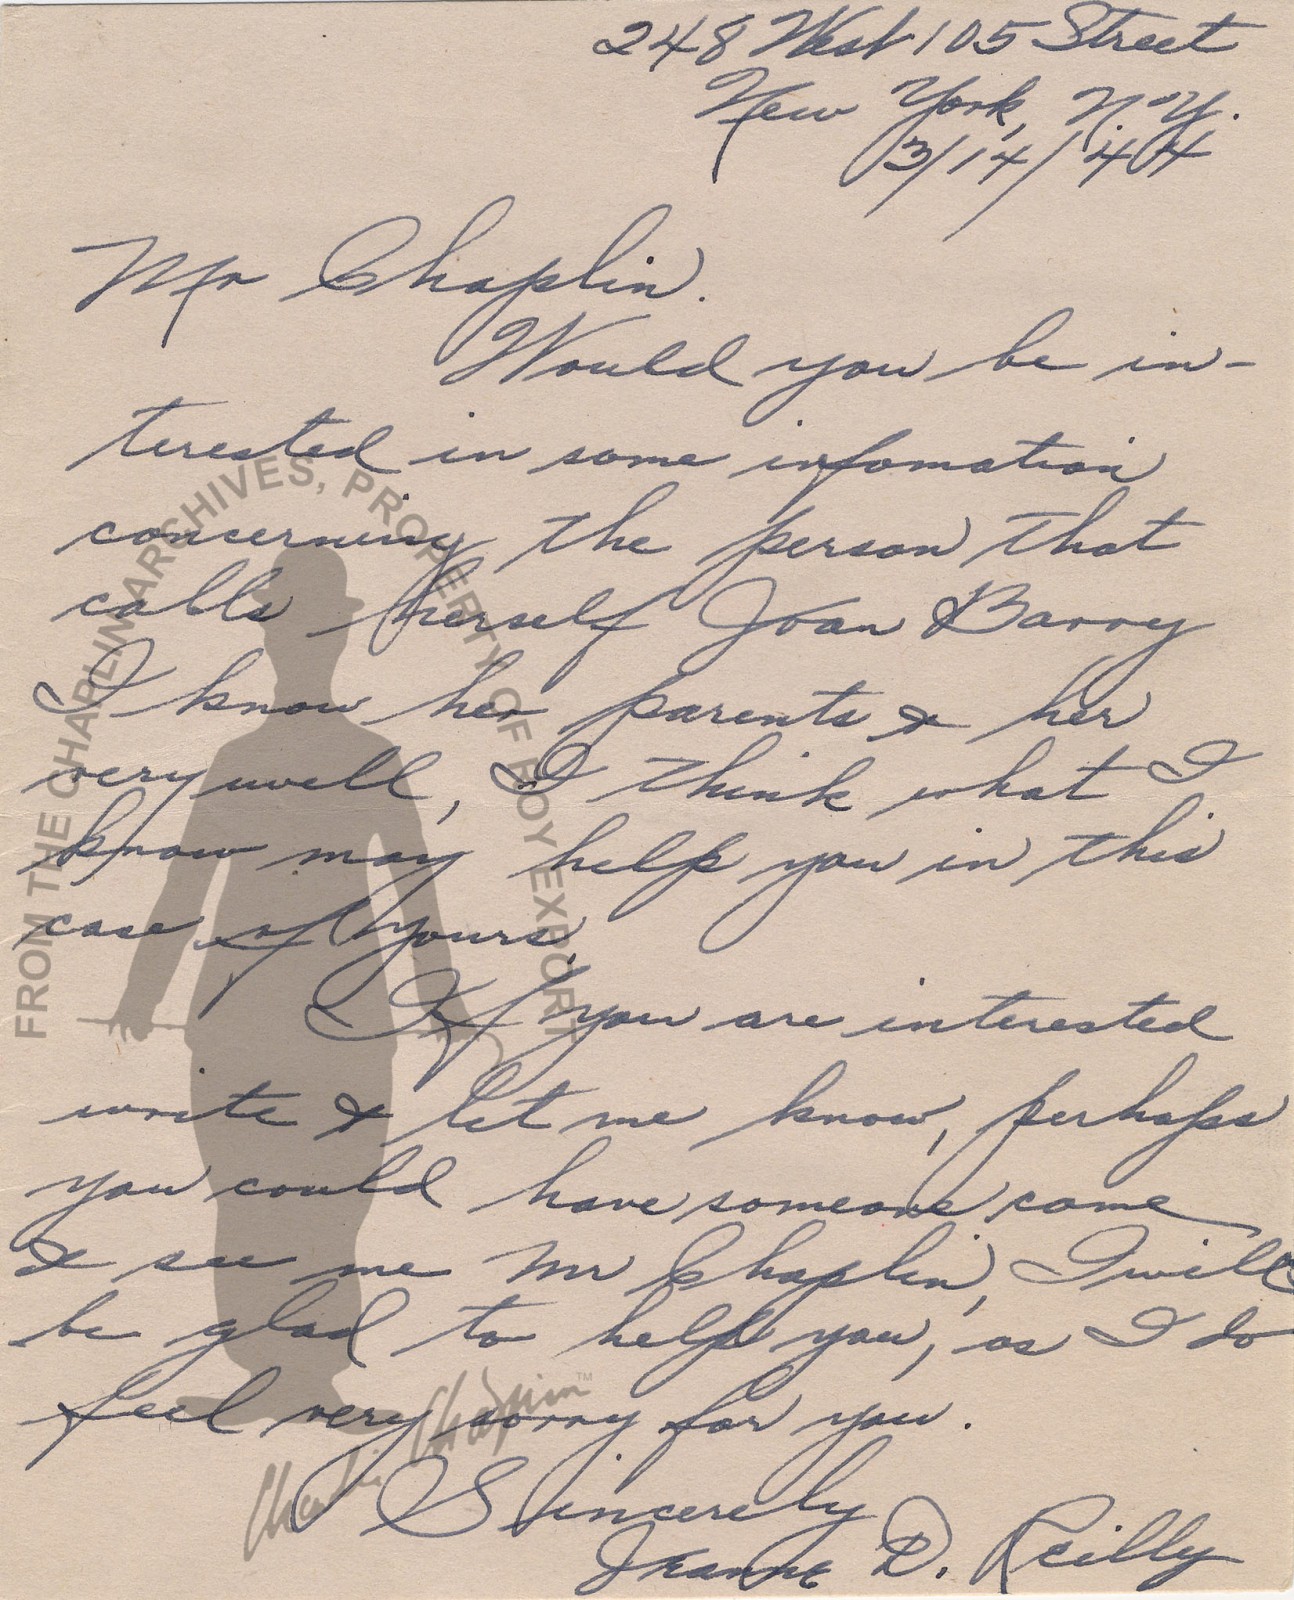 248 West 105 Street
New York, N.Y.
3/14/44
Mr Chaplin.
Would you be in-
terested in some infomation
concerning the person that
calls herself Joan Barry
I know her parents & her
very well, I think what I
know may help you in this
case of yours.
If you are interested
write & let me know, perhaps
you could have someone come
& see me Mr Chaplin, I will
be glad to help you, as I do
feel very sorry for you.
Sincerely
Jeanne D. Reilly
FROM THE CHAPLIN ARCHIVES, PROPERTY OF ROY EXPORT
Charlie Chaplin™